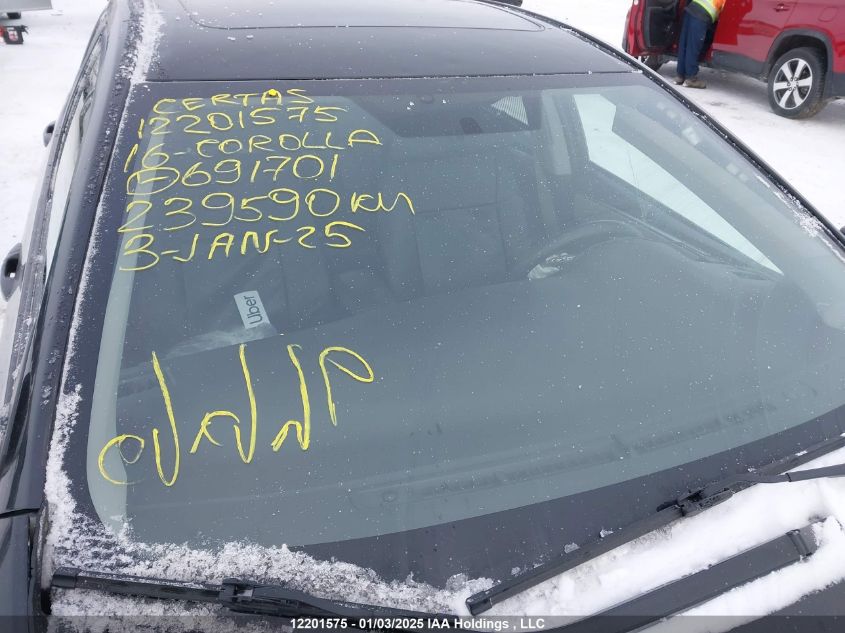 CERTAS
12201575
16-COROLLA
691701
239590KM
3-JAN-25
Uber
12201575 - 01/03/2025 IAA Holdings , LLC